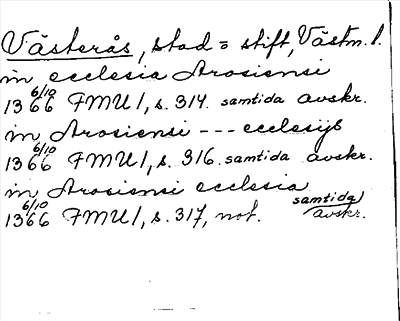 Västerås, stad o stift, Västm. l.
in ecclesia Arosiensi
1366 6/10 FMU I, s. 314. samtida avskr.
in Arosiensi --- ecclesijs
1366 6/10 FMU I, s. 316. samtida avskr.
in Arosiensi ecclesia
1366 6/10 FMU I, s. 317, not. samtida avskr.